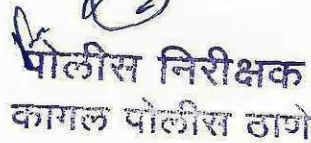 पोलीस निरीक्षक
कागल पोलीस ठाणे